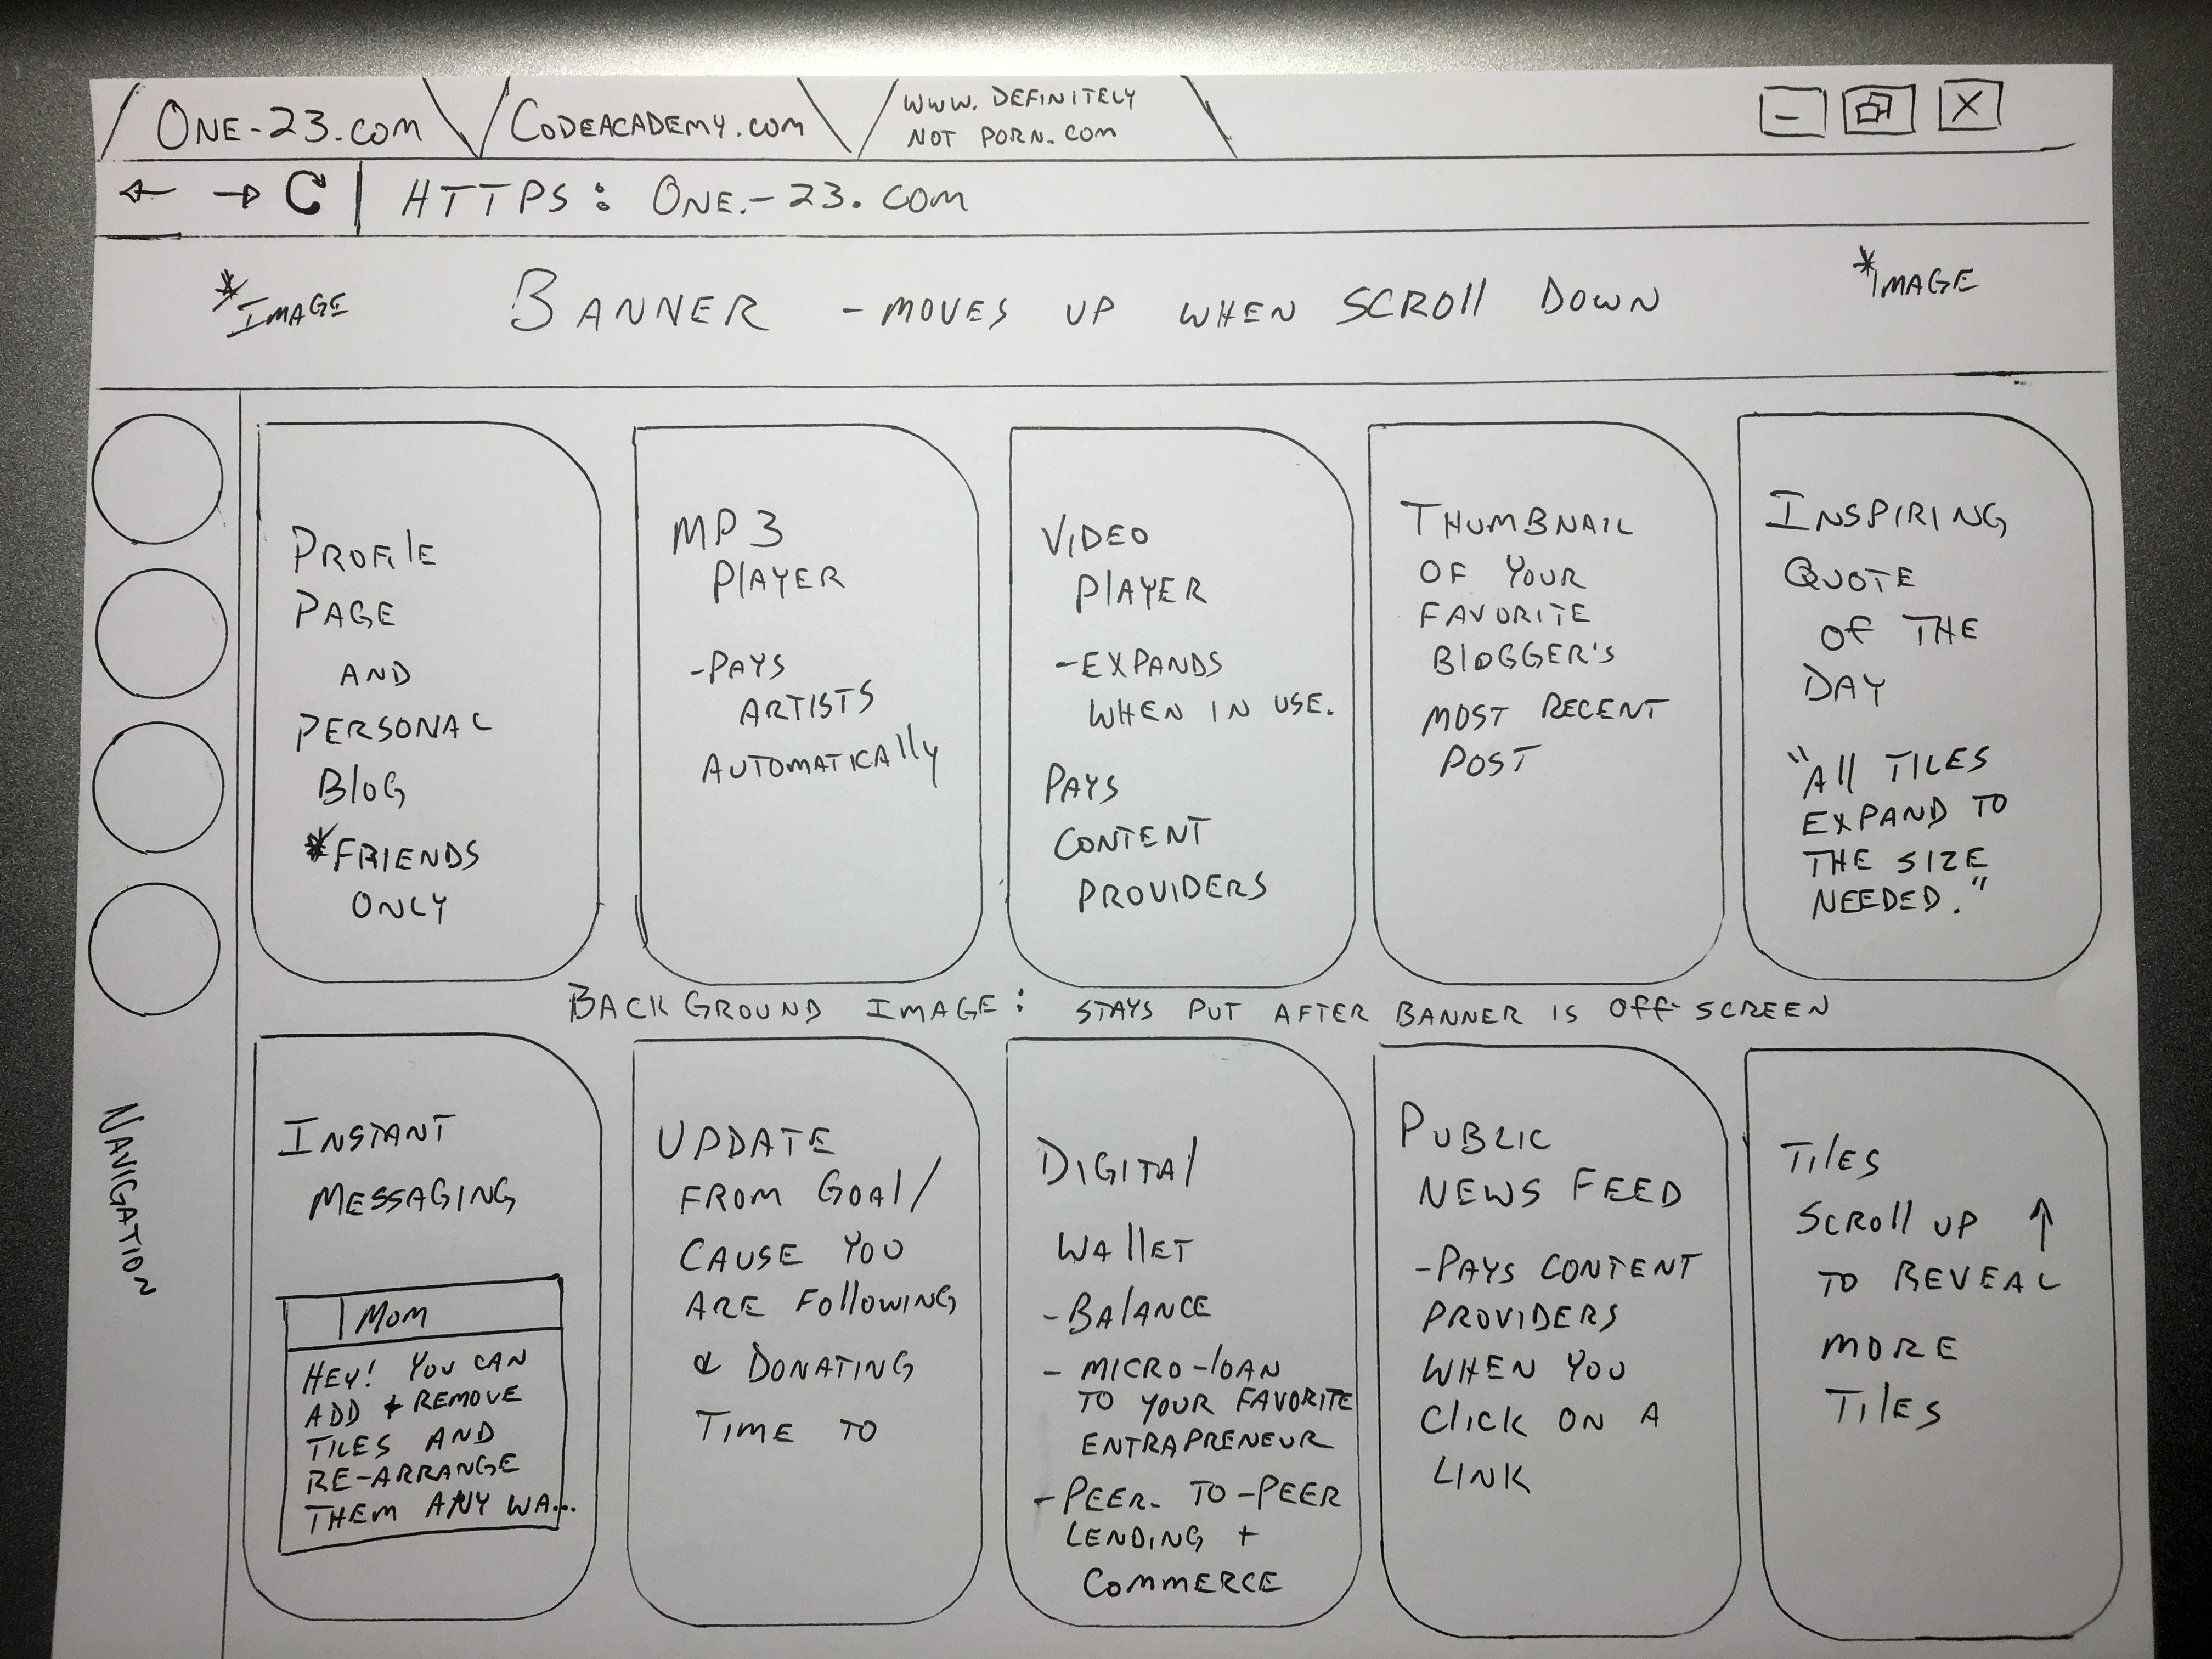 ONE-23.COM
CODEACADEMY.COM
WWW. DEFINITELY
NOT PORN.COM
HTTPS: ONE-23.COM
*IMAGE
BANNER - MOVES UP WHEN SCROLL DOWN
*IMAGE
PROFILE
PAGE
AND
PERSONAL
BLOG
*FRIENDS
ONLY
MP3
PLAYER
-PAYS
ARTISTS
AUTOMATICALLY
VIDEO
PLAYER
-EXPANDS
WHEN IN USE.
PAYS
CONTENT
PROVIDERS
THUMBNAIL
OF YOUR
FAVORITE
BLOGGER'S
MOST RECENT
POST
INSPIRING
QUOTE
OF THE
DAY
"All TILES
EXPAND TO
THE SIZE
NEEDED."
BACKGROUND IMAGE: STAYS PUT AFTER BANNER IS OFF-SCREEN
NAVIGATION
INSTANT
MESSAGING
MOM
HEY! YOU CAN
ADD + REMOVE
TILES AND
RE-ARRANGE
THEM ANY WA..
UPDATE
FROM GOAL/
CAUSE YOU
ARE FOllOWING
& DONATING
TIME TO
DIGITAL
WALLET
-BALANCE
- MICRO-LOAN
TO YOUR FAVORITE
ENTRAPRENEUR
-PEER-TO-PEER
LENDING +
COMMERCE
PUBLIC
NEWS FEED
-PAYS CONTENT
PROVIDERS
WHEN YOU
CLICK ON A
LINK
TILES
SCROLL UP ↑
TO REVEAL
MORE
TILES